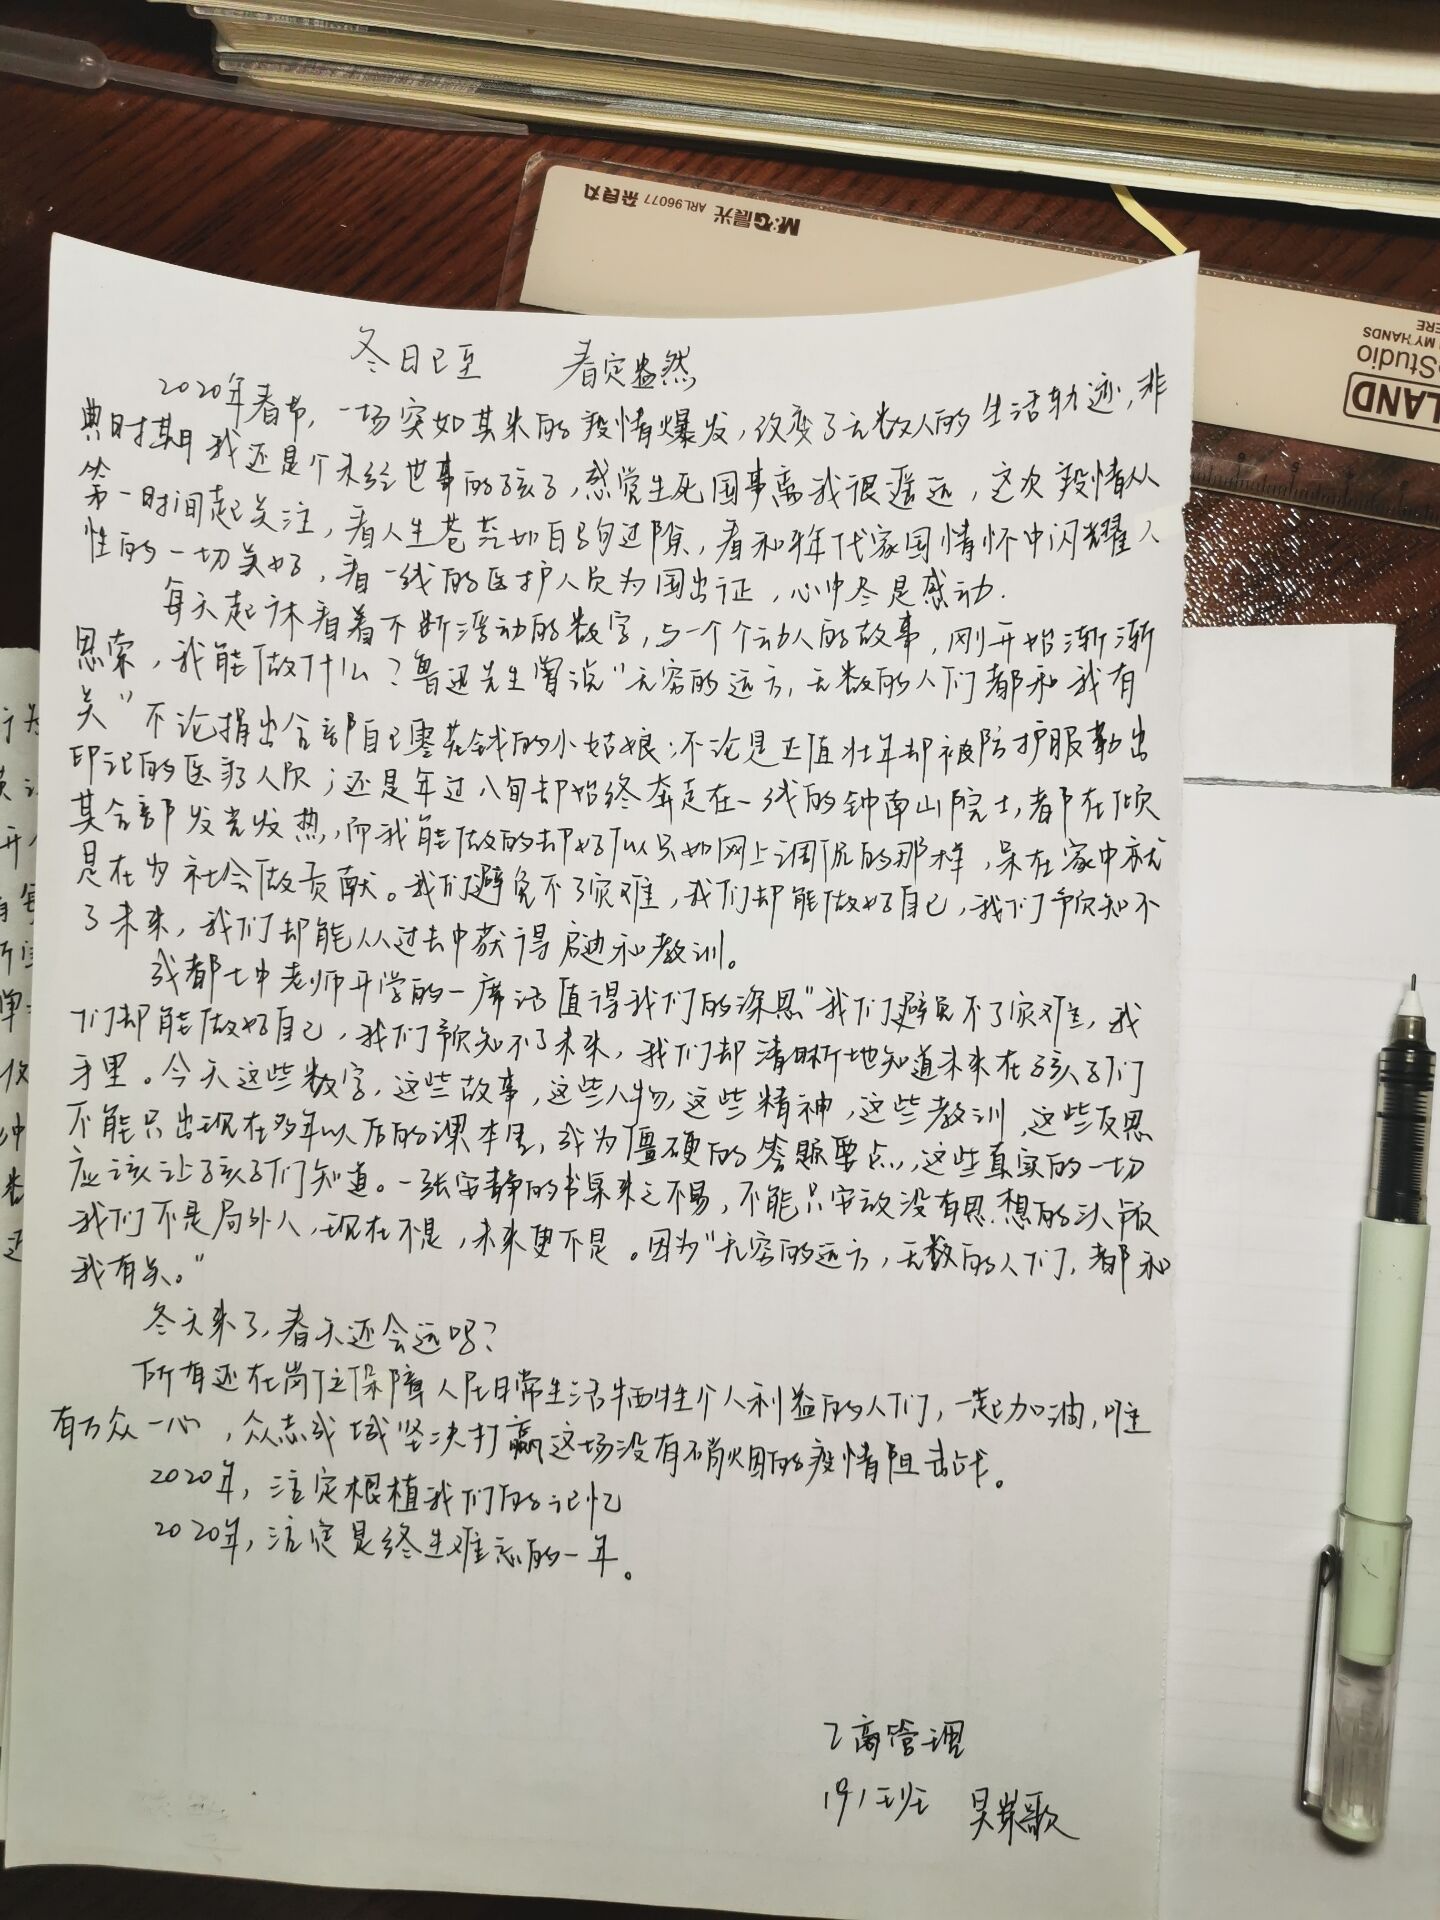 M&G晨光 ARL96077
MY HANDS
Studio
LAND
冬日已至 春定盎然
2020年春节，一场突如其来的疫情爆发，改变了无数人的生活轨迹，非
典时期我还是个未经世事的孩子，感觉生死国事离我很遥远，这次疫情从
第一时间起关注，看人生苍茫如白驹过隙，看和年代家国情怀中闪耀人
性的一切美好，看一线的医护人员为国出征，心中尽是感动.
每天起床看着不断浮动的数字，与一个个动人的故事，刚开始渐渐
思索，我能做什么？鲁迅先生曾说"无穷的远方，无数的人们都和我有
关"不论捐出全部自己零花钱的小姑娘；不论是正值壮年却被防护服勒出
印记的医疗人员；还是年过八旬却始终奔走在一线的钟南山院士，都在倾
其全部发光发热，而我能做的却好似只如网上调侃的那样，呆在家中就
是在为社会做贡献。我们避免不了灾难，我们却能做好自己，我们预知不
了未来，我们却能从过去中获得启迪和教训。
成都七中老师开学的一席话值得我们的深思"我们避免不了灾难，我
们却能做好自己，我们预知不了未来，我们却清晰地知道未来在孩子们
手里。今天这些数字，这些故事，这些人物，这些精神，这些教训，这些反思
不能只出现在多年以后的课本里，成为僵硬的答题要点，这些真实的一切
应该让孩子们知道。一张安静的书桌来之不易，不能只安放没有思想的头颅
我们不是局外人，现在不是，未来更不是。因为"无穷的远方，无数的人们，都和
我有关。"
冬天来了，春天还会远吗？
所有还在岗位保障人民日常生活牺牲个人利益的人们，一起加油，唯
有万众一心，众志成城坚决打赢这场没有硝烟的疫情阻击战。
2020年，注定根植我们的记忆
2020年，注定是终生难忘的一年。
工商管理
191班 吴
歌